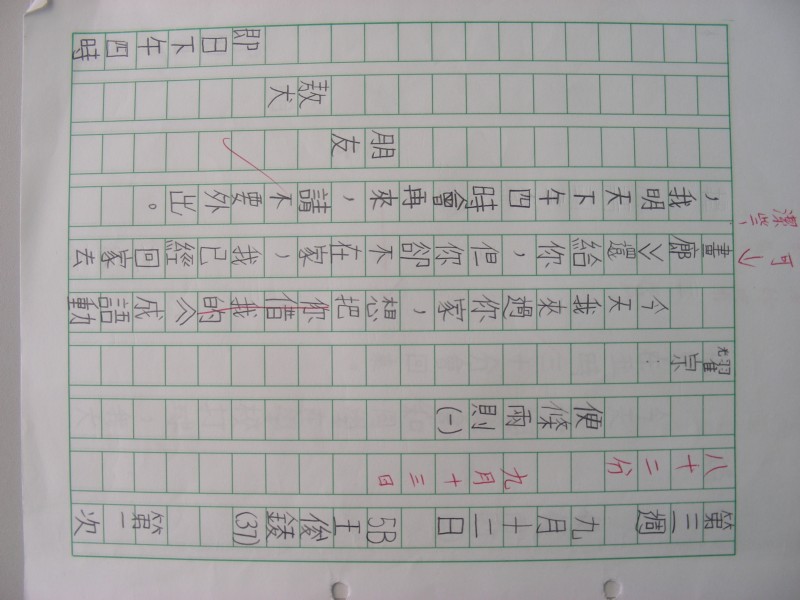 第三週 九月十二日 5B 王俊錂 (37) 第一次
八十二份 九月十三日
便條兩則(一)
耀宗：
今天我來過你家，想把你借我的《成語動
畫廊》還給你，但你卻不在家，我已經回家去
，我明天下午四時會再來，請不要外出。
朋友
敖犬
即日下午四時